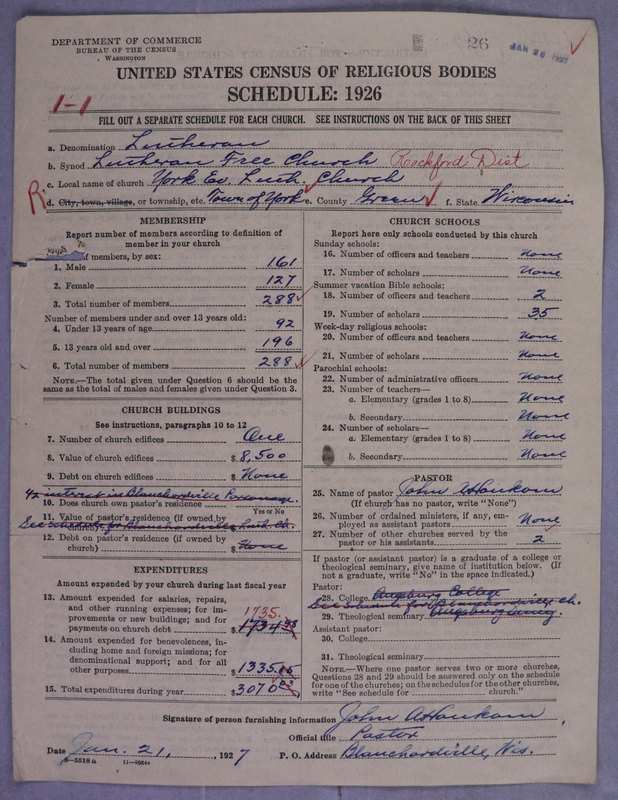 DEPARTMENT OF COMMERCE
BUREAU OF THE CENSUS
WASHINGTON
26
JAN 26 1927
UNITED STATES CENSUS OF RELIGIOUS BODIES
SCHEDULE: 1926
1-1
FILL OUT A SEPARATE SCHEDULE FOR EACH CHURCH. SEE INSTRUCTIONS ON THE BACK OF THIS SHEET
a. Denomination Lutheran
b. Synod Lutheran Free Church Rockford Dist
c. Local name of church York Ev. Luth. Church
R d. City, town, village, or township, etc. Town of York e. County Green f. State Wisconsin
MEMBERSHIP
Report number of members according to definition of
member in your church
of members, by sex:
1. Male 161
2. Female 127
3. Total number of members 288
Number of members under and over 13 years old:
4. Under 13 years of age 92
5. 13 years old and over 196
6. Total number of members 288
NOTE.—The total given under Question 6 should be
the same as the total of males and females given under Question 3.
CHURCH BUILDINGS
See instructions, paragraphs 10 to 12
7. Number of church edifices One
8. Value of church edifices $ 8,500
9. Debt on church edifices $ None
interest in Blanchardville Parsonage
Yes or No
10. Does church own pastor's residence?
11. Value of pastor's residence (if owned by
church)
See Schedule for Blanchardville Luth. Ch.
12. Debt on pastor's residence (if owned by
church) $ None
EXPENDITURES
Amount expended by your church during last fiscal year
13. Amount expended for salaries, repairs,
and other running expenses; for im-
provements or new buildings; and for
payments on church debt $ 1735.
14. Amount expended for benevolences, in-
cluding home and foreign missions; for
denominational support; and for all
other purposes $ 1335.
15. Total expenditures during year $ 3070
CHURCH SCHOOLS
Report here only schools conducted by this church
Sunday schools:
16. Number of officers and teachers None
17. Number of scholars None
Summer vacation Bible schools:
18. Number of officers and teachers 2
19. Number of scholars 35
Week-day religious schools:
20. Number of officers and teachers None
21. Number of scholars None
Parochial schools:
22. Number of administrative officers None
23. Number of teachers—
a. Elementary (grades 1 to 8) None
b. Secondary None
24. Number of scholars—
a. Elementary (grades 1 to 8) None
b. Secondary None
PASTOR
25. Name of pastor John A Houkom
(If church has no pastor, write "None")
26. Number of ordained ministers, if any, em-
ployed as assistant pastors None
27. Number of other churches served by the
pastor or his assistants 2
If pastor (or assistant pastor) is a graduate of a college or
theological seminary, give name of institution below. (If
not a graduate, write "No" in the space indicated.)
Pastor:
28. College Augsburg College
See Schedule for Blanchardville ch.
29. Theological seminary Augsburg Seminary.
Assistant pastor:
30. College
31. Theological seminary
NOTE.—Where one pastor serves two or more churches,
Questions 28 and 29 should be answered only on the schedule
for one of the churches; on the schedules for the other churches,
write "See schedule for church."
Signature of person furnishing information John A Houkom
Official title Pastor
Date Jan. 21, , 1927 P. O. Address Blanchardville, Wis.